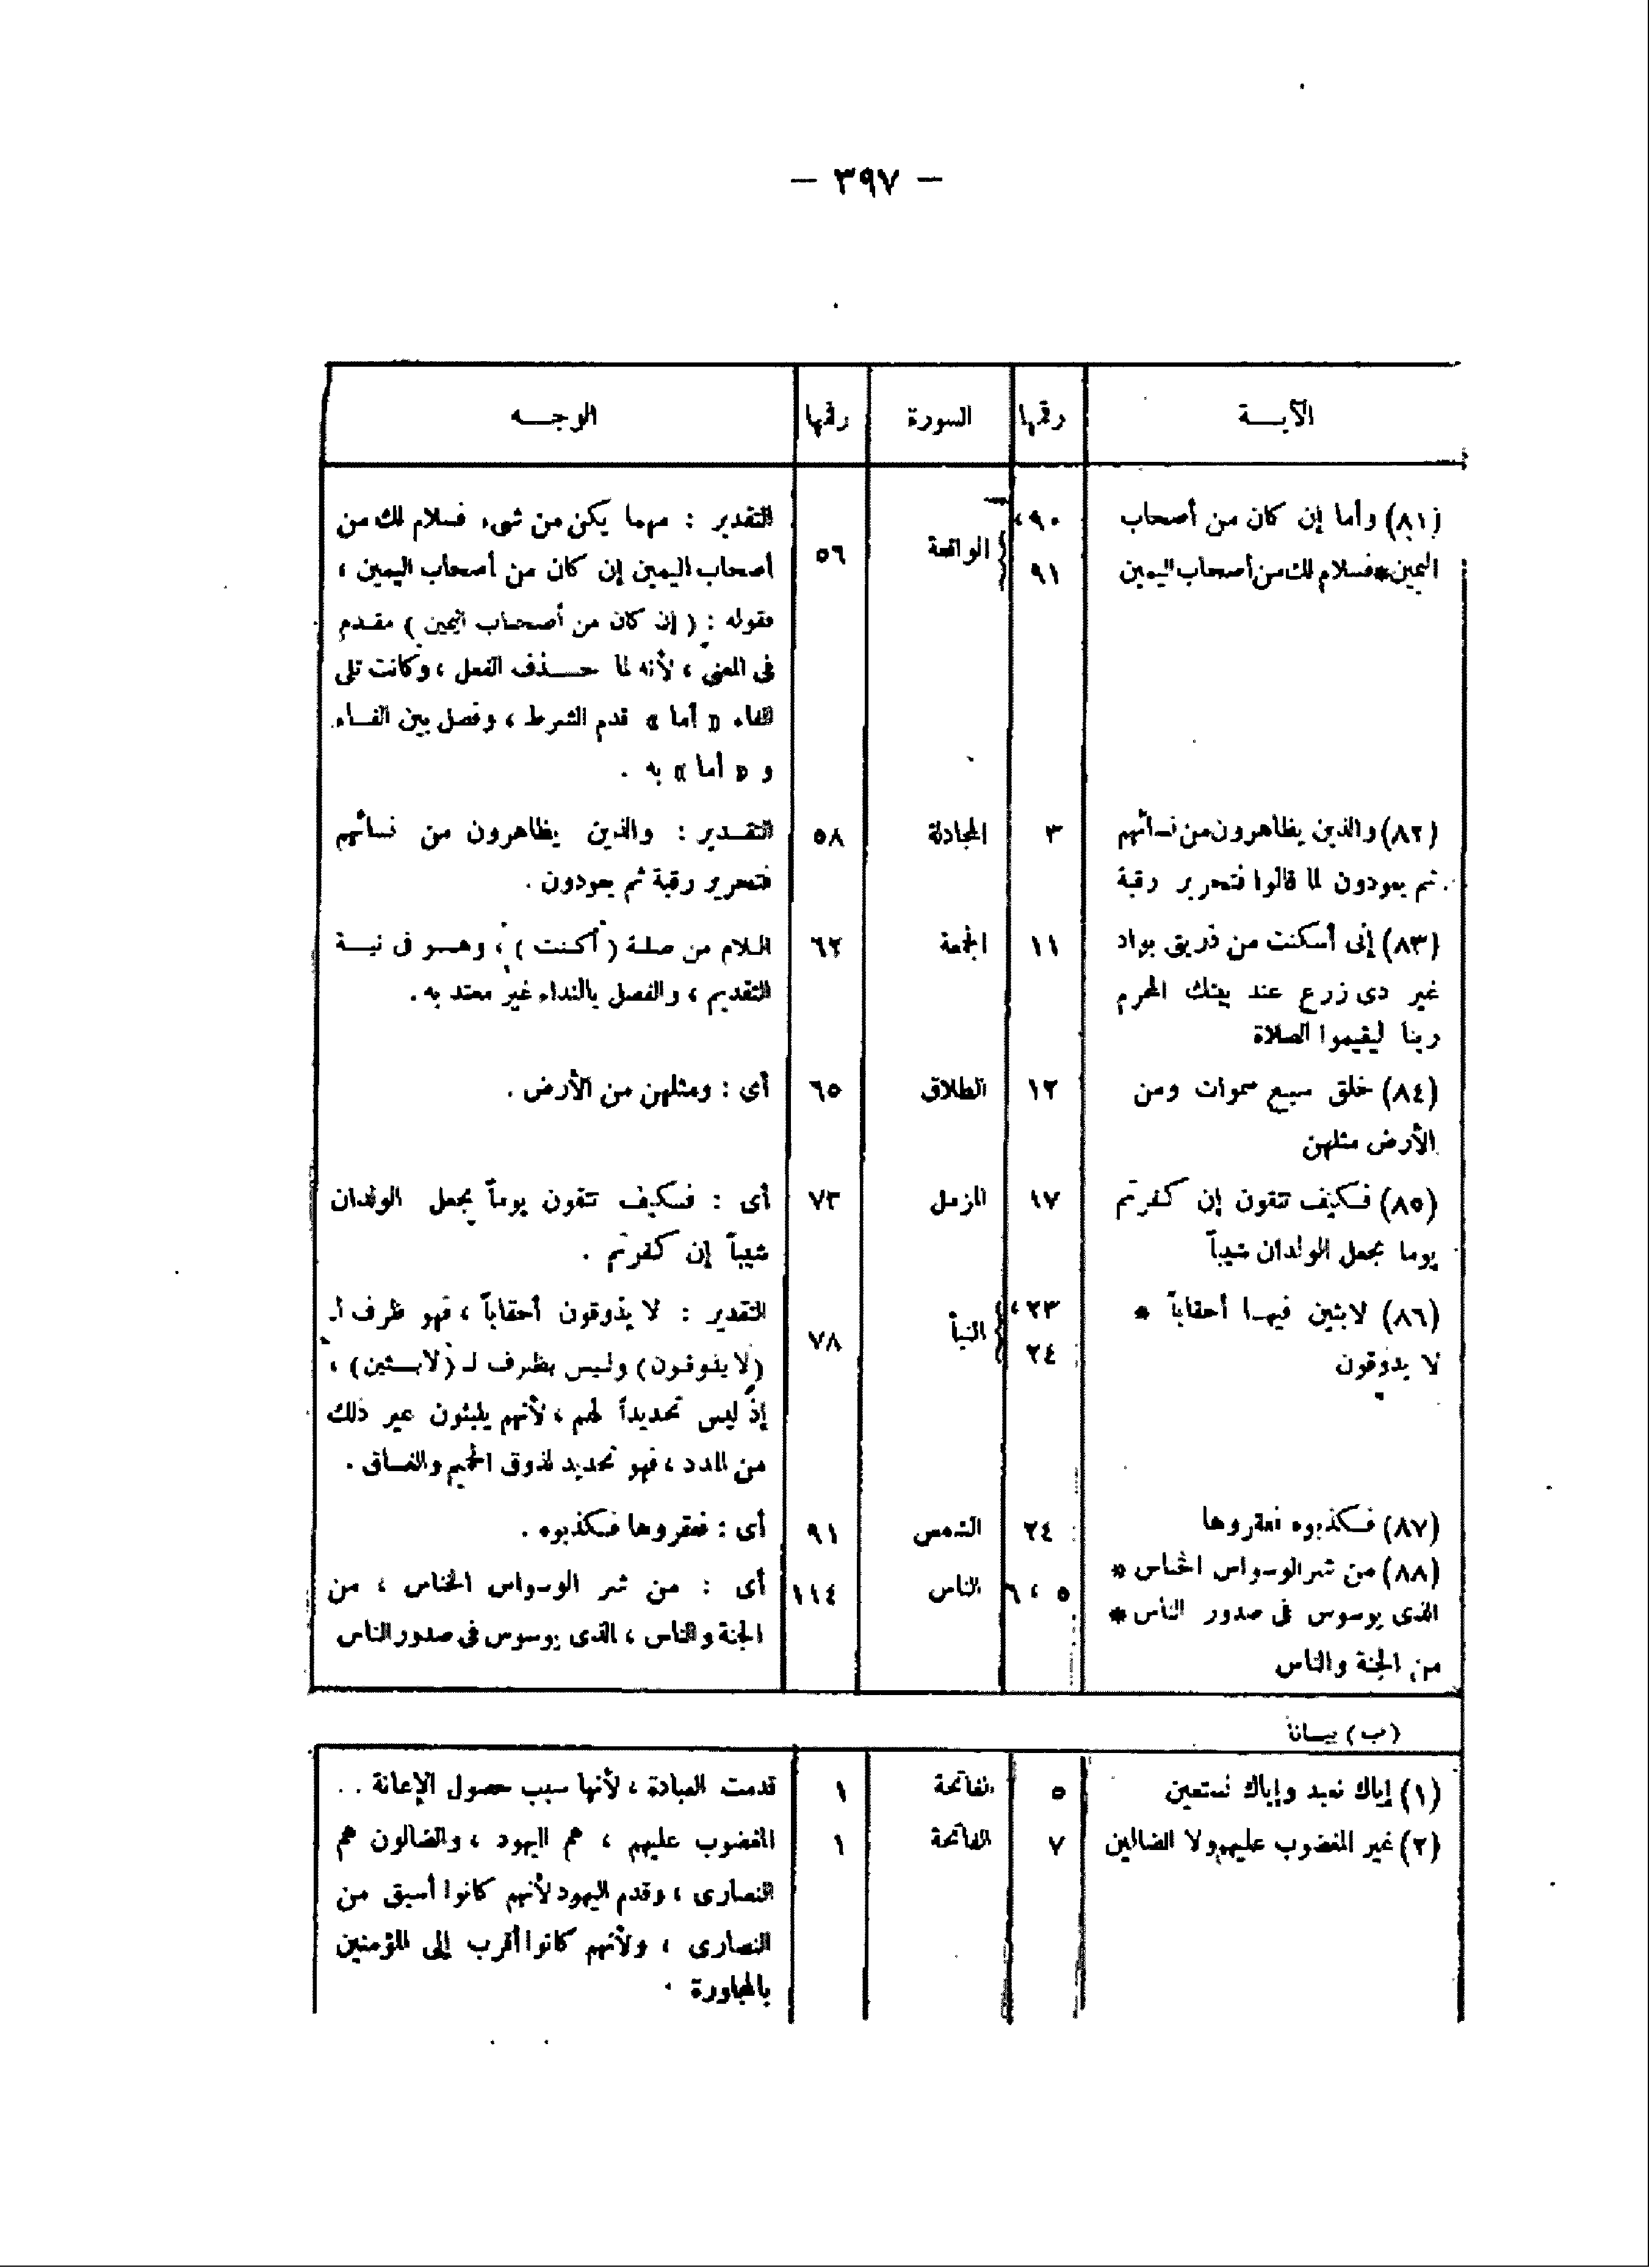 — ٣٩٧ —
الآيـــة رقمها السورة رقمها الوجـــه
(٨١) وأما إن كان من أصحاب ٩٠، الواقعة ٥٦ التقدير : مهما يكن من شىء فسلام لك من
اليمين*فسلام لك من أصحاب اليمين ٩١ أصحاب اليمين إن كان من أصحاب اليمين ،
فقوله : ( إن كان من أصحاب اليمين ) مقدم
فى المعنى ، لأنه لما حـــذف الفعل ، وكانت تلى
الفاء « أما » قدم الشرط ، وفصل بين الفـاء
و « أما » به .
(٨٢) والذين يظاهرون من نسائهم ٣ المجادلة ٥٨ التقـدير : والذين يظاهرون من نسائهم
ثم يعودون لما قالوا فتحرير رقبة فتحرير رقبة ثم يعودون .
(٨٣) إنى أسكنت من ذريتى بواد ١١ الجمعة ٦٢ اللام من صلة ( أسكنت ) ، وهـو فى نيـة
غير ذى زرع عند بيتك المحرم التقديم ، والفصل بالنداء غير معتد به .
ربنا ليقيموا الصلاة
(٨٤) خلق سبع سموات ومن ١٢ الطلاق ٦٥ أى : ومثلهن من الأرض .
الأرض مثلهن
(٨٥) فكيف تتقون إن كفرتم ١٧ المزمل ٧٣ أى : فكيف تتقون يوماً يجعل الولدان
يوما يجعل الولدان شيباً شيباً إن كفرتم .
(٨٦) لابثين فيهـا أحقاباً * ٢٣، النبأ ٧٨ التقدير : لا يذوقون أحقاباً ، فهو ظرف لـ
لا يذوقون ٢٤ (لا يذوقون) وليس بظرف لـ (لابـثين) ،
إذ ليس تحديداً لهم ، لأنهم يلبثون غير ذلك
من المدد ، فهو تحديد لذوق الحميم والغساق .
(٨٧) فكذبوه فعقروها ٢٤ الشمس ٩١ أى : فعقروها فكذبوه .
(٨٨) من شر الوسواس الخناس * ٥ ، ٦ الناس ١١٤ أى : من شر الوسواس الخناس ، من
الذى يوسوس فى صدور الناس * الجنة والناس ، الذى يوسوس فى صدور الناس
من الجنة والناس
(ب) بيـانا
(١) إياك نعبد وإياك نستعين ٥ الفاتحة ١ قدمت العبادة ، لأنها سبب حصول الإعانة . .
(٢) غير المغضوب عليهم ولا الضالين ٧ الفاتحة ١ المغضوب عليهم ، هم اليهود ، والضالون هم
النصارى ، وقدم اليهود لأنهم كانوا أسبق من
النصارى ، ولأنهم كانوا أقرب إلى المؤمنين
بالمجاورة .